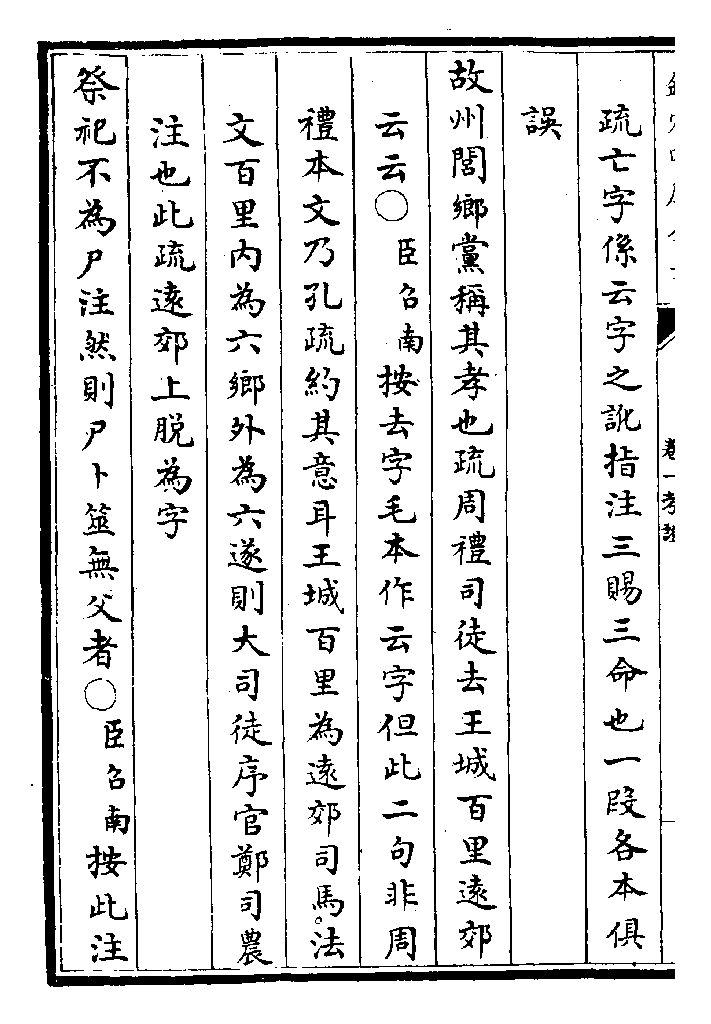 疏亡字係云字之訛指注三賜三命也一段各本俱
誤
故州閭鄉黨稱其孝也疏周禮司徒去王城百里逺郊
云云○臣召南按去字毛本作云字但此二句非周
禮本文乃孔疏約其意耳王城百里為逺郊司馬法
文百里内為六鄉外為六遂則大司徒序官鄭司農
注也此疏逺郊上脱為字
祭祀不為尸注然則尸卜筮無父者○臣召南按此注
卷一考證